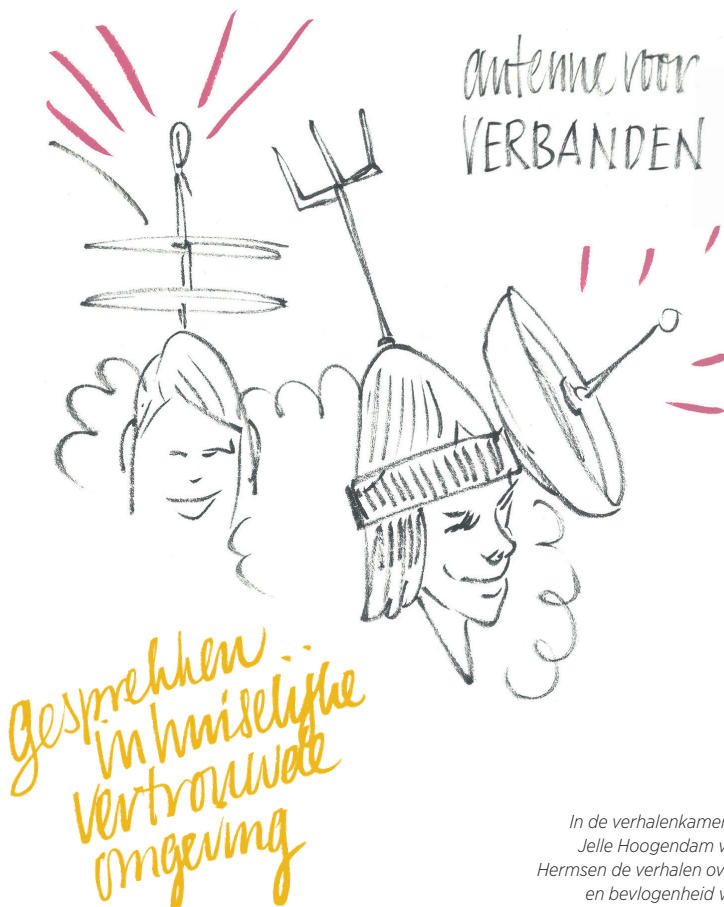 antenne voor
VERBANDEN
gesprekken
in huiselijke
vertrouwde
omgeving
In de verhalenkamer
Jelle Hoogendam v
Hermsen de verhalen ov
en bevlogenheid v